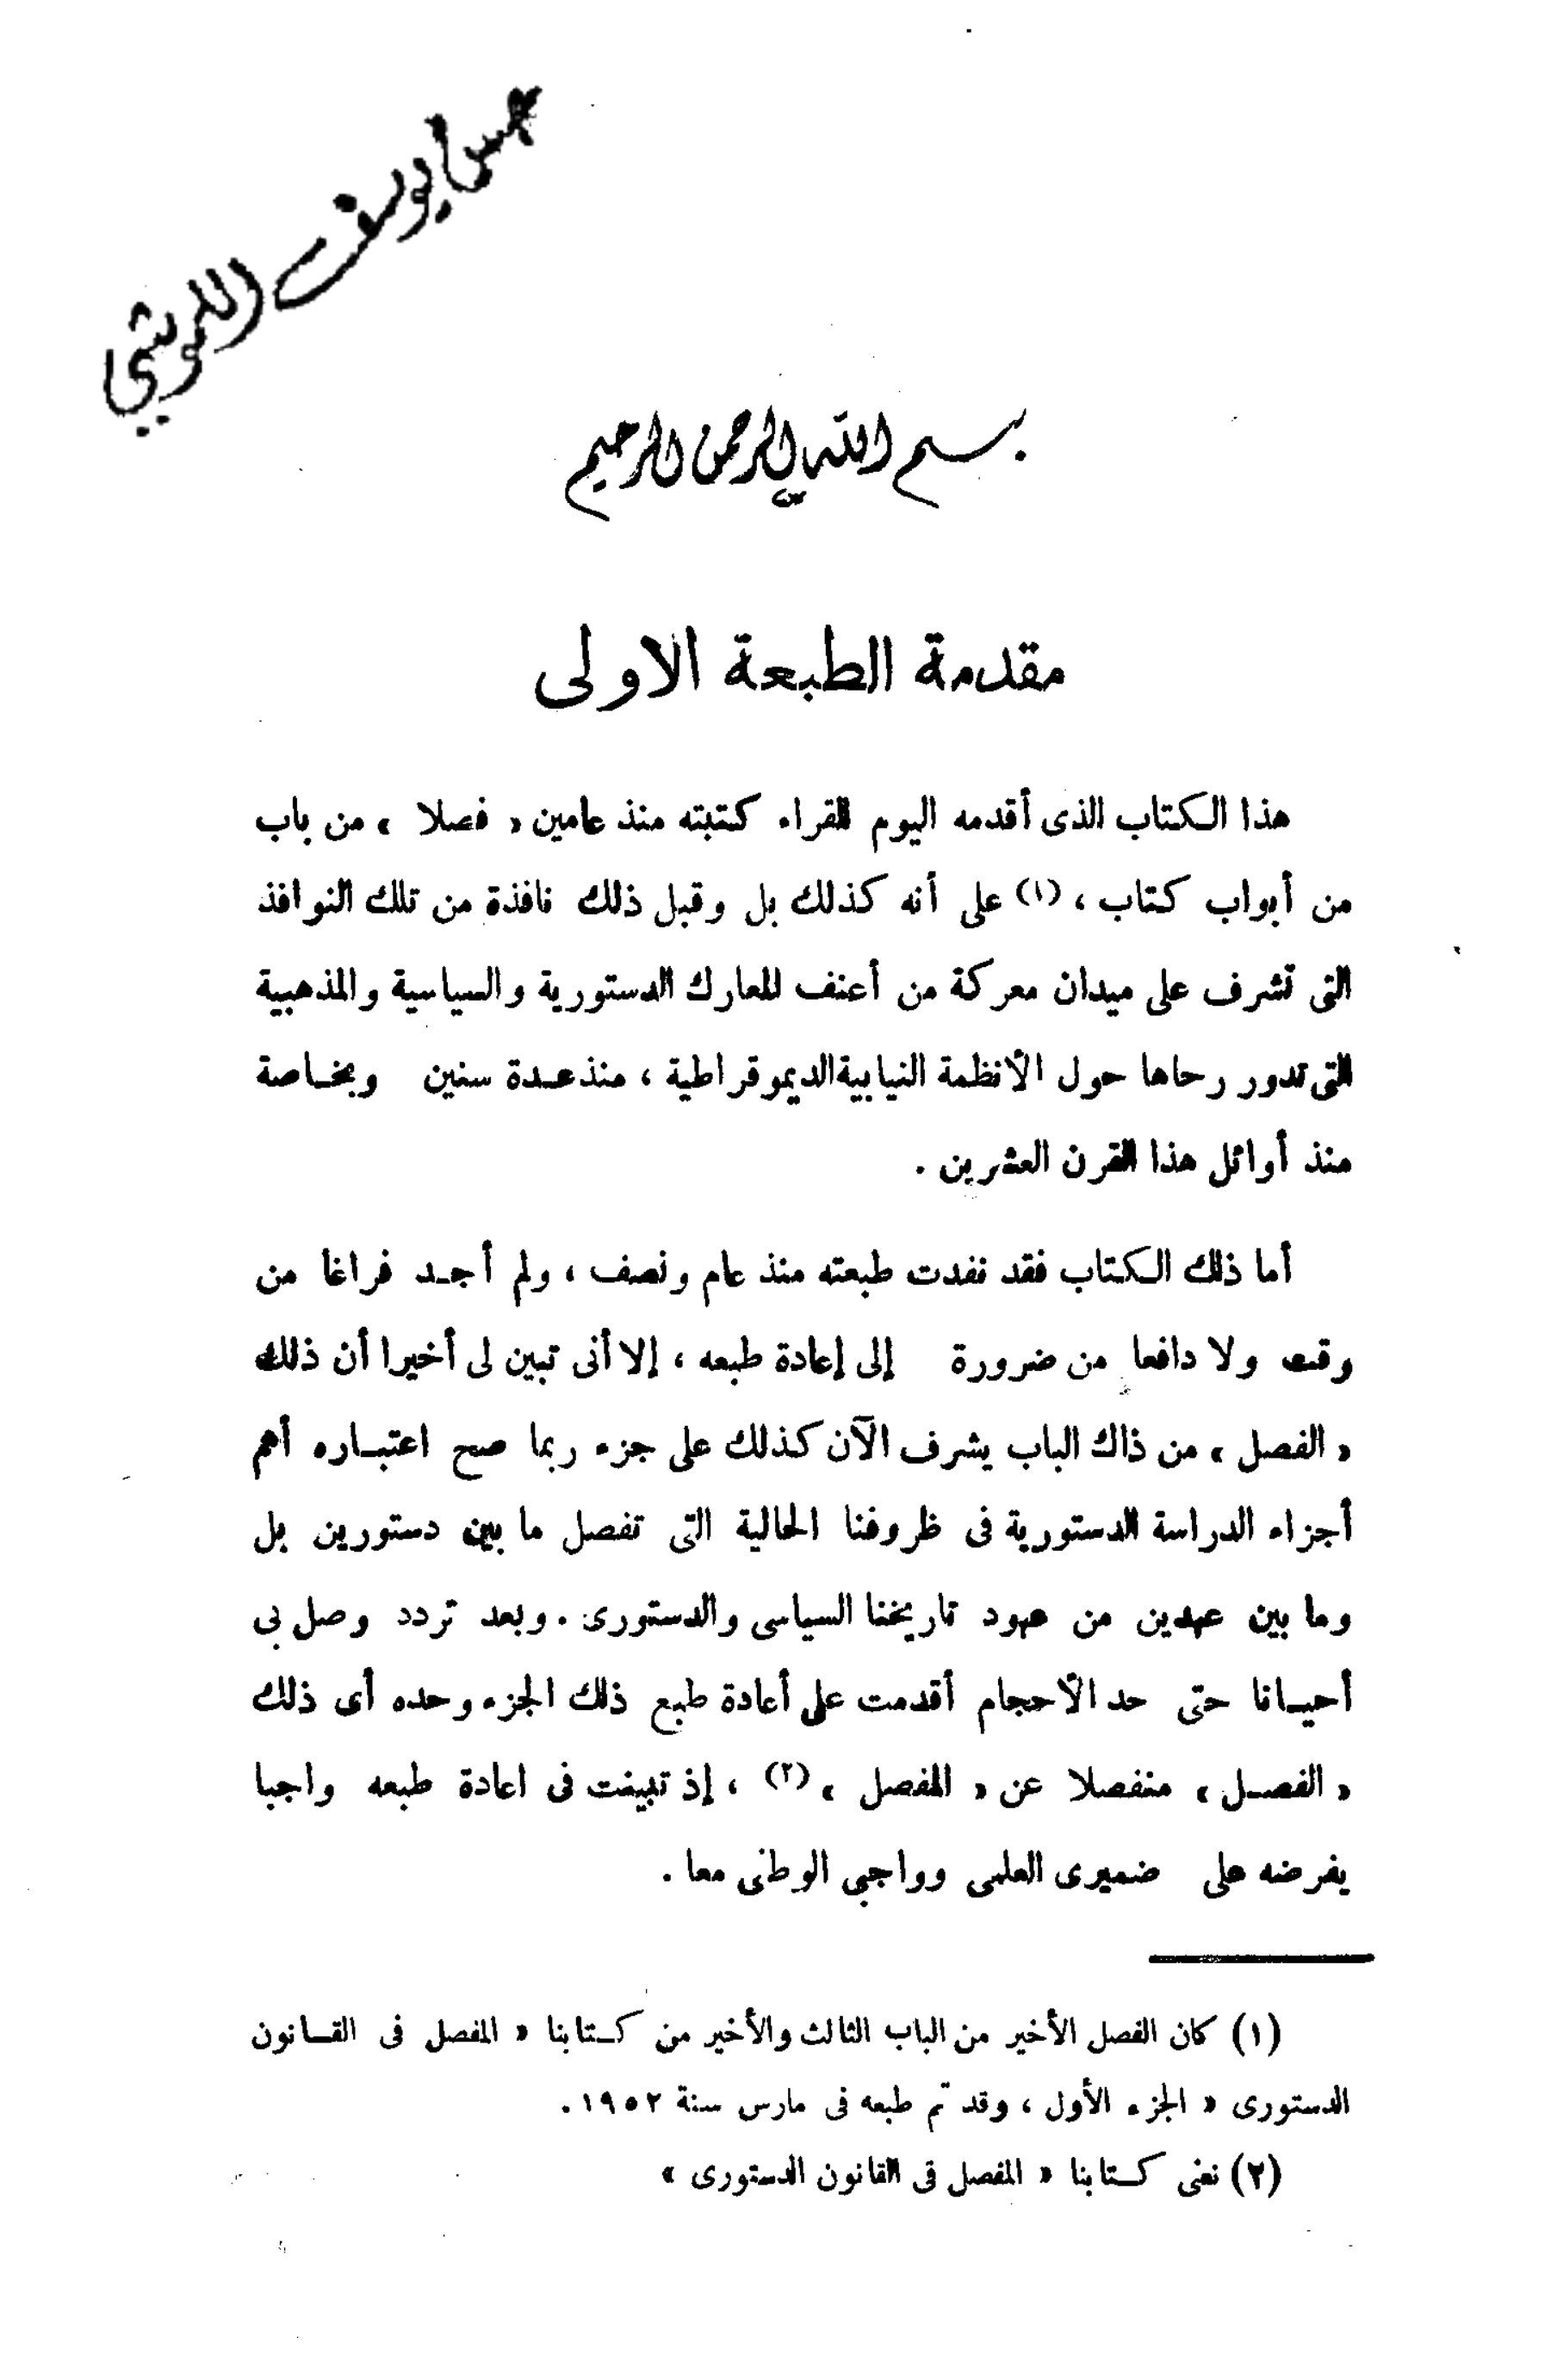 يوسف
بسم الله الرحمن الرحيم
مقدمة الطبعة الاولى
هذا الكتاب الذى أقدمه اليوم للقراء كتبته منذ عامين « فصلا » من باب
من أبواب كتاب ، (١) على أنه كذلك بل وقبل ذلك نافذة من تلك النوافذ
التى تشرف على ميدان معركة من أعنف المعارك الدستورية والسياسية والمذهبية
التى تدور رحاها حول الأنظمة النيابية الديموقراطية ، منذ عدة سنين وبخاصة
منذ أوائل هذا القرن العشرين .
أما ذلك الكتاب فقد نفدت طبعته منذ عام ونصف ، ولم أجد فراغا من
وقت ولا دافعا من ضرورة إلى إعادة طبعه ، إلا أنى تبين لى أخيرا أن ذلك
« الفصل » من ذاك الباب يشرف الآن كذلك على جزء ربما صح اعتباره أهم
أجزاء الدراسة الدستورية فى ظروفنا الحالية التى تفصل ما بين دستورين بل
وما بين عهدين من عهود تاريخنا السياسى والدستورى . وبعد تردد وصل بى
أحيانا حتى حد الأحجام أقدمت على أعادة طبع ذلك الجزء وحده أى ذلك
« الفصل » منفصلا عن « المفصل » (٢) ، إذ تبينت فى اعادة طبعه واجبا
يفرضه على ضميرى العلمى وواجبى الوطنى معا .
(١) كان الفصل الأخير من الباب الثالث والأخير من كتابنا « المفصل فى القانون
الدستورى « الجزء الأول ، وقد تم طبعه فى مارس سنة ١٩٥٢ .
(٢) نعنى كتابنا « المفصل فى القانون الدستورى »